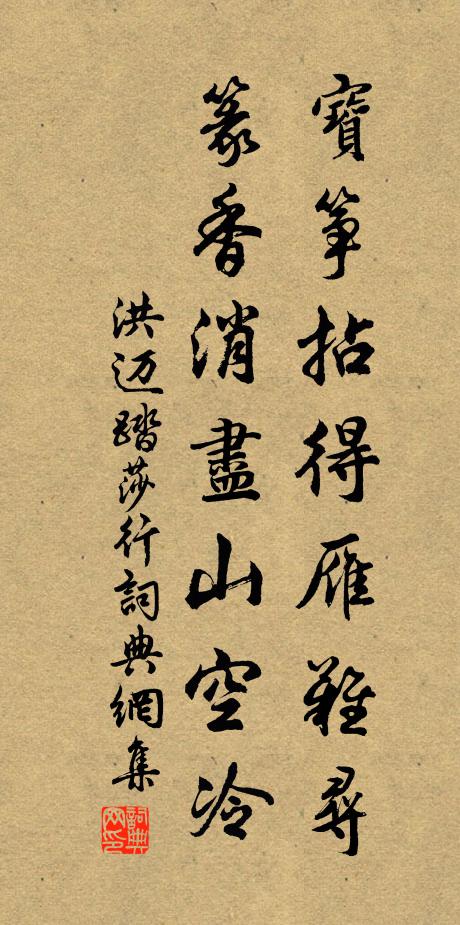 寶箏拈得雁難尋
篆香消盡山空冷
洪迈踏莎行詞典網集
詞典網印